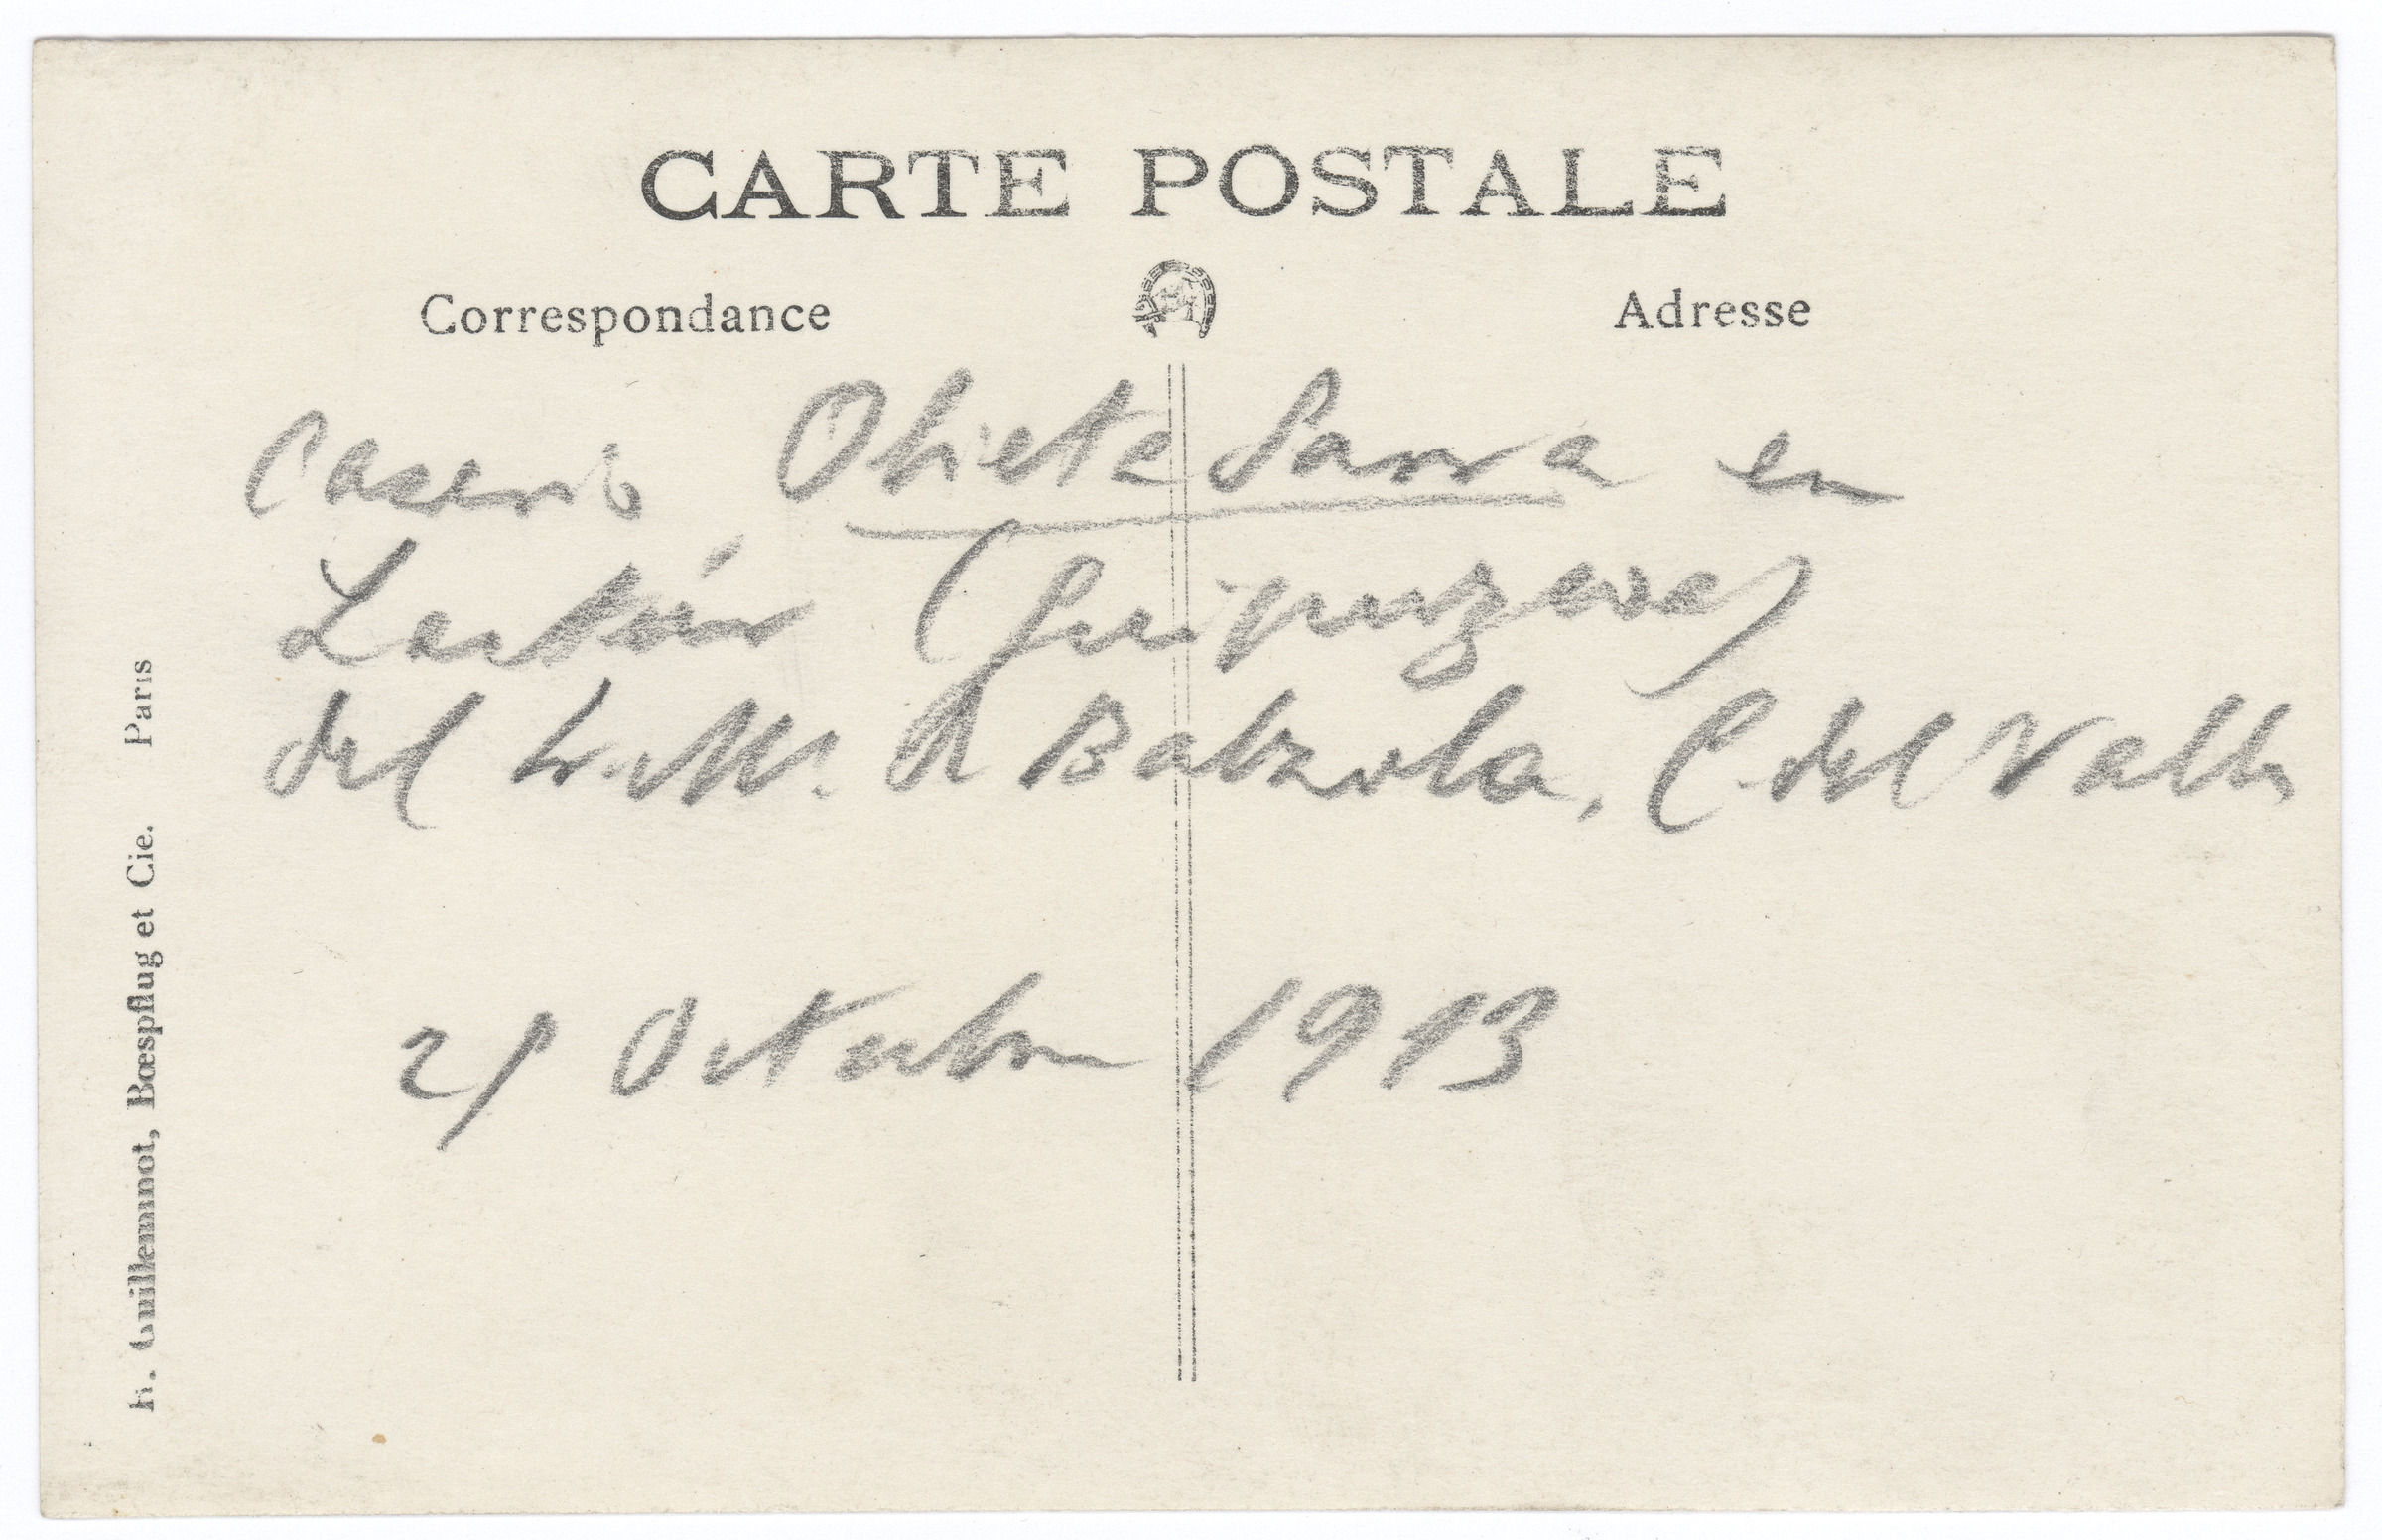 CARTE POSTALE
Correspondance
Adresse
Caserio Obieta Sarra en
(Guipuzcoa)
del
Balzola, C. del Valle
21 Octubre 1913
R. Guilleminot, Bœspflug et Cie. Paris